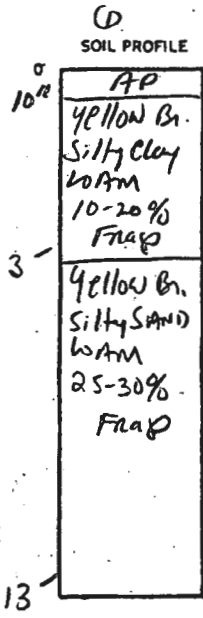 ①
SOIL PROFILE
0
AP
10"
Yellow Br.
Silty Clay
LOAM
10-20%
Frag
3
Yellow Br.
Silty SAND
LOAM
25-30%
Frag
13